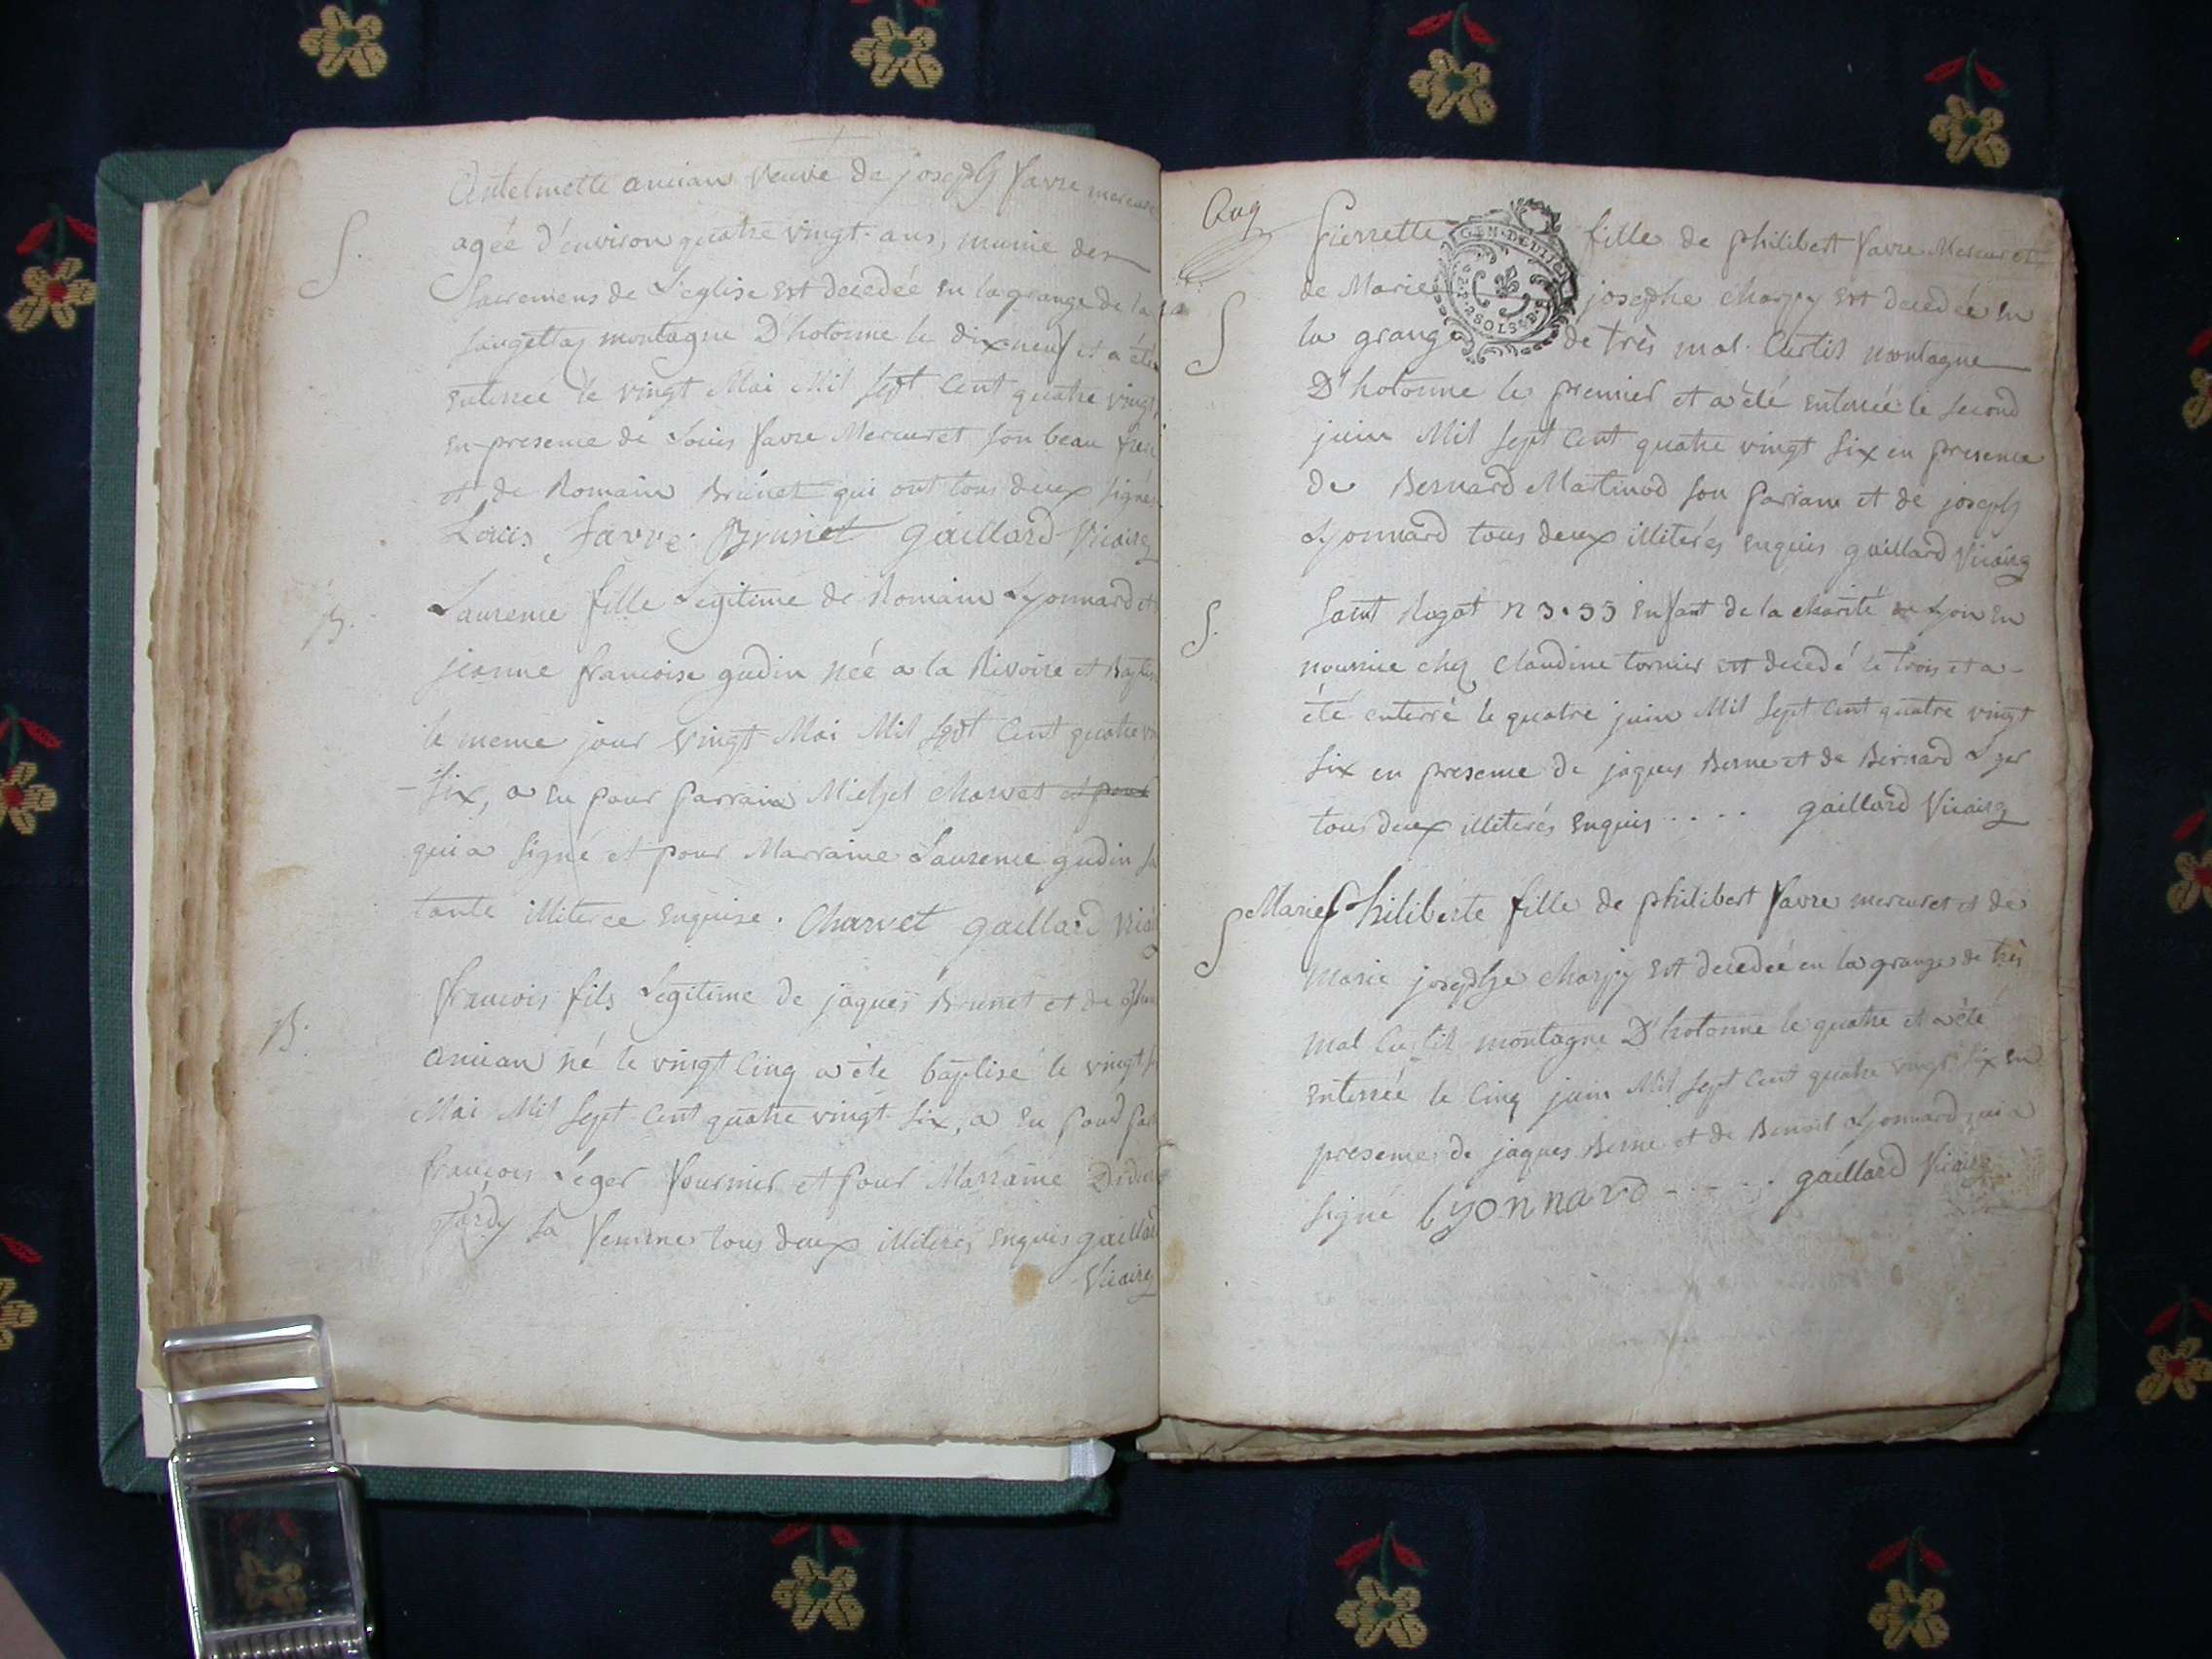 S.
Antelmette ancian veuve de joseph favre mercuret
agée d'environ quatre vingt ans, munie des
sacremens de L'eglise est decedée en la grange de la
montagne D'hotonne le dix neuf et a été
enterrée le vingt Mai Mil sept cent quatre vingt
en presence de Louis favre Mercuret son beau frere
et de Romain Brunet qui ont tous deux signé
Louis favre Brunet gaillard Vicaire
B.
Laurence fille Legitime de Romain Lyonnard et
jeanne francoise gudin née a la Rivoire et
le meme jour vingt Mai Mil sept cent quatre
-six, a eu pour parrain Michel charvet et pour
qui a signé et pour Marraine Laurence gudin sa
tante illiterée enquise. Charvet gaillard
B.
francois fils Legitime de jaques Brunet et de
ancian né le vingt cinq a été baptisé le vingt
Mai Mil sept cent quatre vingt six, a eu pour
françois Léger fournier et pour Marraine
Tardy sa femme tous deux illiterés enquis gaillard
Vicaire
S
Pierrette fille de philibert favre Mercuret
GEN. DE DIJON
de Marie josephe charpy est decedée en
la grange de très mal curtil montagne
D'hotonne le premier et a été enterrée le second
juin Mil sept cent quatre vingt six en presence
de Bernard Martinod son parrain et de joseph
Lyonnard tous deux illiterés enquis gaillard Vicaire
S.
Saint Rogat n 3.55 enfant de la charité de Lyon en
nourrice chez Claudine tornier est decedé le trois et a
été enterré le quatre juin Mil sept cent quatre vingt
six en presence de jaques Berne et de Bernard
tous deux illiterés enquis .... gaillard Vicaire
S
Marie philiberte fille de philibert favre mercuret et de
Marie josephe charpy est decedée en la grange de très
mal curtil montagne D'hotonne le quatre et a été
enterrée le cinq juin Mil sept cent quatre vingt six en
presence de jaques Berne et de Benoit Lyonnard qui a
signé lyonnard ..... gaillard Vicaire